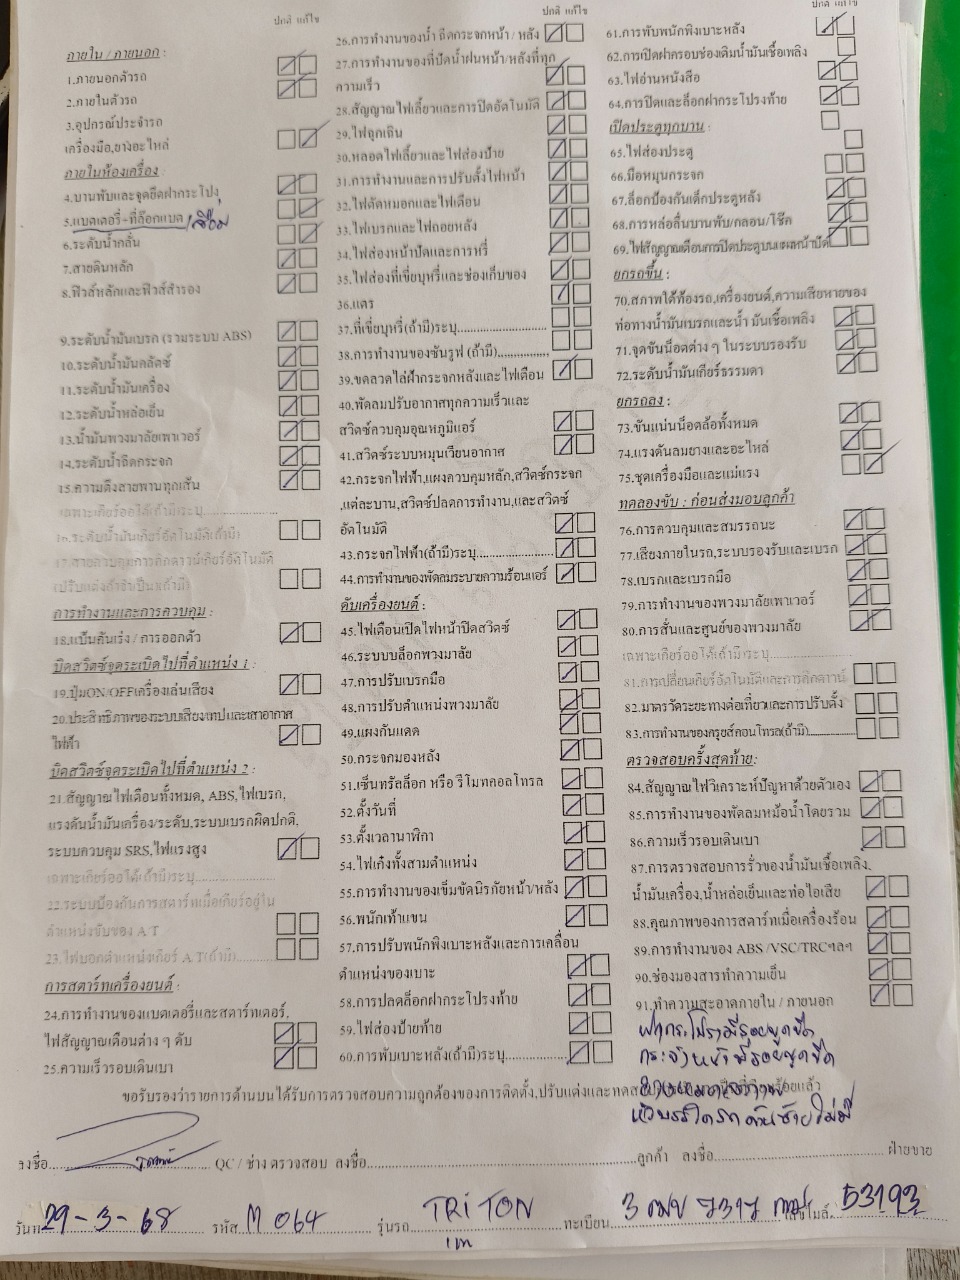 ปกติ แก้ไข
ภายใน / ภายนอก :
1.ภายนอกตัวรถ
2.ภายในตัวรถ
3.อุปกรณ์ประจำรถ
เครื่องมือ,ยางอะไหล่
ภายในห้องเครื่อง
4.บานพับและจุดยึดฝากระโปรง
5.แบตเตอรี่-ที่ล๊อกแบต/เสื่อม
6.ระดับน้ำกลั่น
7.สายดินหลัก
8.ฟิวส์หลักและฟิวส์สำรอง
9.ระดับน้ำมันเบรก (รวมระบบ ABS)
10.ระดับน้ำมันคลัตช์
11.ระดับน้ำมันเครื่อง
12.ระดับน้ำหล่อเย็น
13.น้ำมันพวงมาลัยเพาเวอร์
14.ระดับน้ำฉีดกระจก
15.ความตึงสายพานทุกเส้น
เฉพาะเกียร์ออโต้(ถ้ามี)ระบุ
16.ระดับน้ำมันเกียร์อัตโนมัติ(ถ้ามี)
17.สายควบคุมการคิกดาวน์เกียร์อัตโนมัติ
(ปรับแต่งถ้าจำเป็น)(ถ้ามี)
การทำงานและการควบคุม :
18.แป้นคันเร่ง / การออกตัว
บิดสวิตซ์จุดระเบิดไปที่ตำแหน่ง 1 :
19.ปุ่มON/OFFเครื่องเล่นเสียง
20.ประสิทธิภาพของระบบเสียงเทปและเสาอากาศ
ไฟฟ้า
บิดสวิตซ์จุดระเบิดไปที่ตำแหน่ง 2 :
21.สัญญาณไฟเตือนทั้งหมด, ABS,ไฟเบรก,
แรงดันน้ำมันเครื่อง/ระดับ,ระบบเบรกผิดปกติ,
ระบบควบคุม SRS,ไฟแรงสูง
เฉพาะเกียร์ออโต้(ถ้ามี)ระบุ
22.ระบบป้องกันการสตาร์ทเมื่อเกียร์อยู่ใน
ตำแหน่งขับของ A/T
23.ไฟบอกตำแหน่งเกียร์ A/T(ถ้ามี)
การสตาร์ทเครื่องยนต์ :
24.การทำงานของแบตเตอรี่และสตาร์ทเตอร์,
ไฟสัญญาณเตือนต่าง ๆ ดับ
25.ความเร็วรอบเดินเบา
ปกติ แก้ไข
26.การทำงานของน้ำ ฉีดกระจกหน้า / หลัง
27.การทำงานของที่ปัดน้ำฝนหน้า/หลังที่ทุก
ความเร็ว
28.สัญญาณไฟเลี้ยวและการปิดอัตโนมัติ
29.ไฟฉุกเฉิน
30.หลอดไฟเลี้ยวและไฟส่องป้าย
31.การทำงานและการปรับตั้งไฟหน้า
32.ไฟตัดหมอกและไฟเตือน
33.ไฟเบรกและไฟถอยหลัง
34.ไฟส่องหน้าปัดและการหรี่
35.ไฟส่องที่เขี่ยบุหรี่และช่องเก็บของ
36.แตร
37.ที่เขี่ยบุหรี่(ถ้ามี)ระบุ
38.การทำงานของซันรูฟ (ถ้ามี)
39.ขดลวดไล่ฝ้ากระจกหลังและไฟเตือน
40.พัดลมปรับอากาศทุกความเร็วและ
สวิตช์ควบคุมอุณหภูมิแอร์
41.สวิตช์ระบบหมุนเวียนอากาศ
42.กระจกไฟฟ้า,แผงควบคุมหลัก,สวิตซ์กระจก
,แต่ละบาน,สวิตซ์ปลดการทำงาน,และสวิตซ์
อัตโนมัติ
43.กระจกไฟฟ้า(ถ้ามี)ระบุ
44.การทำงานของพัดลมระบายความร้อนแอร์
ดับเครื่องยนต์ :
45.ไฟเตือนเปิดไฟหน้าปิดสวิตซ์
46.ระบบบล็อกพวงมาลัย
47.การปรับเบรกมือ
48.การปรับตำแหน่งพวงมาลัย
49.แผงกันแดด
50.กระจกมองหลัง
51.เซ็นทรัลล็อก หรือ รีโมทคอลโทรล
52.ตั้งวันที่
53.ตั้งเวลานาฬิกา
54.ไฟเก๋งทั้งสามตำแหน่ง
55.การทำงานของเข็มขัดนิรภัยหน้า/หลัง
56.พนักเท้าแขน
57.การปรับพนักพิงเบาะหลังและการเคลื่อน
ตำแหน่งของเบาะ
58.การปลดล็อกฝากระโปรงท้าย
59.ไฟส่องป้ายท้าย
60.การพับเบาะหลัง(ถ้ามี)ระบุ
ปกติ แก้ไข
61.การพับพนักพิงเบาะหลัง
62.การเปิดฝาครอบช่องเติมน้ำมันเชื้อเพลิง
63.ไฟอ่านหนังสือ
64.การปิดและล็อกฝากระโปรงท้าย
เปิดประตูทุกบาน :
65.ไฟส่องประตู
66.มือหมุนกระจก
67.ล็อกป้องกันเด็กประตูหลัง
68.การหล่อลื่นบานพับ/กลอน/โช๊ค
69.ไฟสัญญาณเตือนการปิดประตูบนแผงหน้าปัด
ยกรถขึ้น :
70.สภาพใต้ท้องรถ,เครื่องยนต์,ความเสียหายของ
ท่อทางน้ำมันเบรกและน้ำ มันเชื้อเพลิง
71.จุดขันน็อตต่าง ๆ ในระบบรองรับ
72.ระดับน้ำมันเกียร์ธรรมดา
ยกรถลง :
73.ขันแน่นน็อตล้อทั้งหมด
74.แรงดันลมยางและอะไหล่
75.ชุดเครื่องมือและแม่แรง
ทดลองขับ : ก่อนส่งมอบลูกค้า
76.การควบคุมและสมรรถนะ
77.เสียงภายในรถ,ระบบรองรับและเบรก
78.เบรกและเบรกมือ
79.การทำงานของพวงมาลัยเพาเวอร์
80.การสั่นและศูนย์ของพวงมาลัย
เฉพาะเกียร์ออโต้(ถ้ามี)ระบุ
81.การเปลี่ยนเกียร์อัตโนมัติและการคิกดาวน์
82.มาตรวัดระยะทางต่อเที่ยวและการปรับตั้ง
83.การทำงานของครูยส์คอนโทรล(ถ้ามี)
ตรวจสอบครั้งสุดท้าย:
84.สัญญาณไฟวิเคราะห์ปัญหาด้วยตัวเอง
85.การทำงานของพัดลมหม้อน้ำโดยรวม
86.ความเร็วรอบเดินเบา
87.การตรวจสอบการรั่วของน้ำมันเชื้อเพลิง,
น้ำมันเครื่อง,น้ำหล่อเย็นและท่อไอเสีย
88.คุณภาพของการสตาร์ทเมื่อเครื่องร้อน
89.การทำงานของ ABS /VSC/TRCฯลฯ
90.ช่องมองสารทำความเย็น
91.ทำความสะอาดภายใน / ภายนอก
ฝากระโปรงมีรอยขูดขีด
กระจังหน้ามีรอยขูดขีด
ขอรับรองว่ารายการด้านบนได้รับการตรวจสอบความถูกต้องของการติดตั้ง,ปรับแต่งและทดสอบ
ลงชื่อ QC / ช่างตรวจสอบ ลงชื่อ ลูกค้า ลงชื่อ ฝ่ายขาย
วันที่ 29-3-68 รหัส M 064 รุ่นรถ TRITON ทะเบียน เลขไมล์ 53193